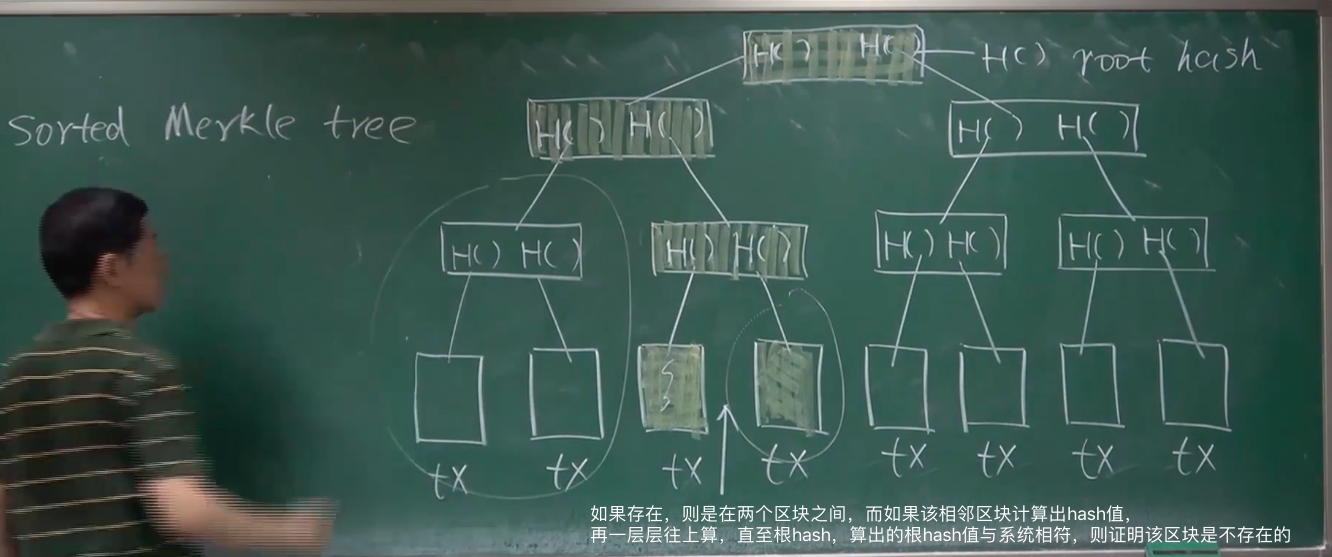 H( ) H( ) H( ) root hash
Sorted Merkle tree
H( ) H( ) H( ) H( )
H( ) H( ) H( ) H( ) H( ) H( ) H( ) H( )
tx tx tx tx tx tx tx tx
如果存在，则是在两个区块之间，而如果该相邻区块计算出hash值，
再一层层往上算，直至根hash，算出的根hash值与系统相符，则证明该区块是不存在的